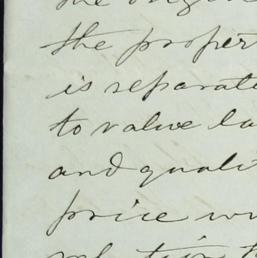 the origin
the proper
is separate
to value la
and quali
price w